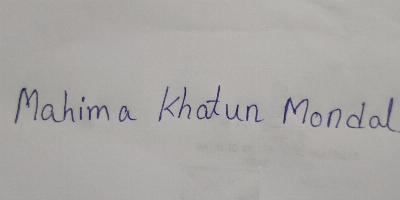 Mahima Khatun Mondal